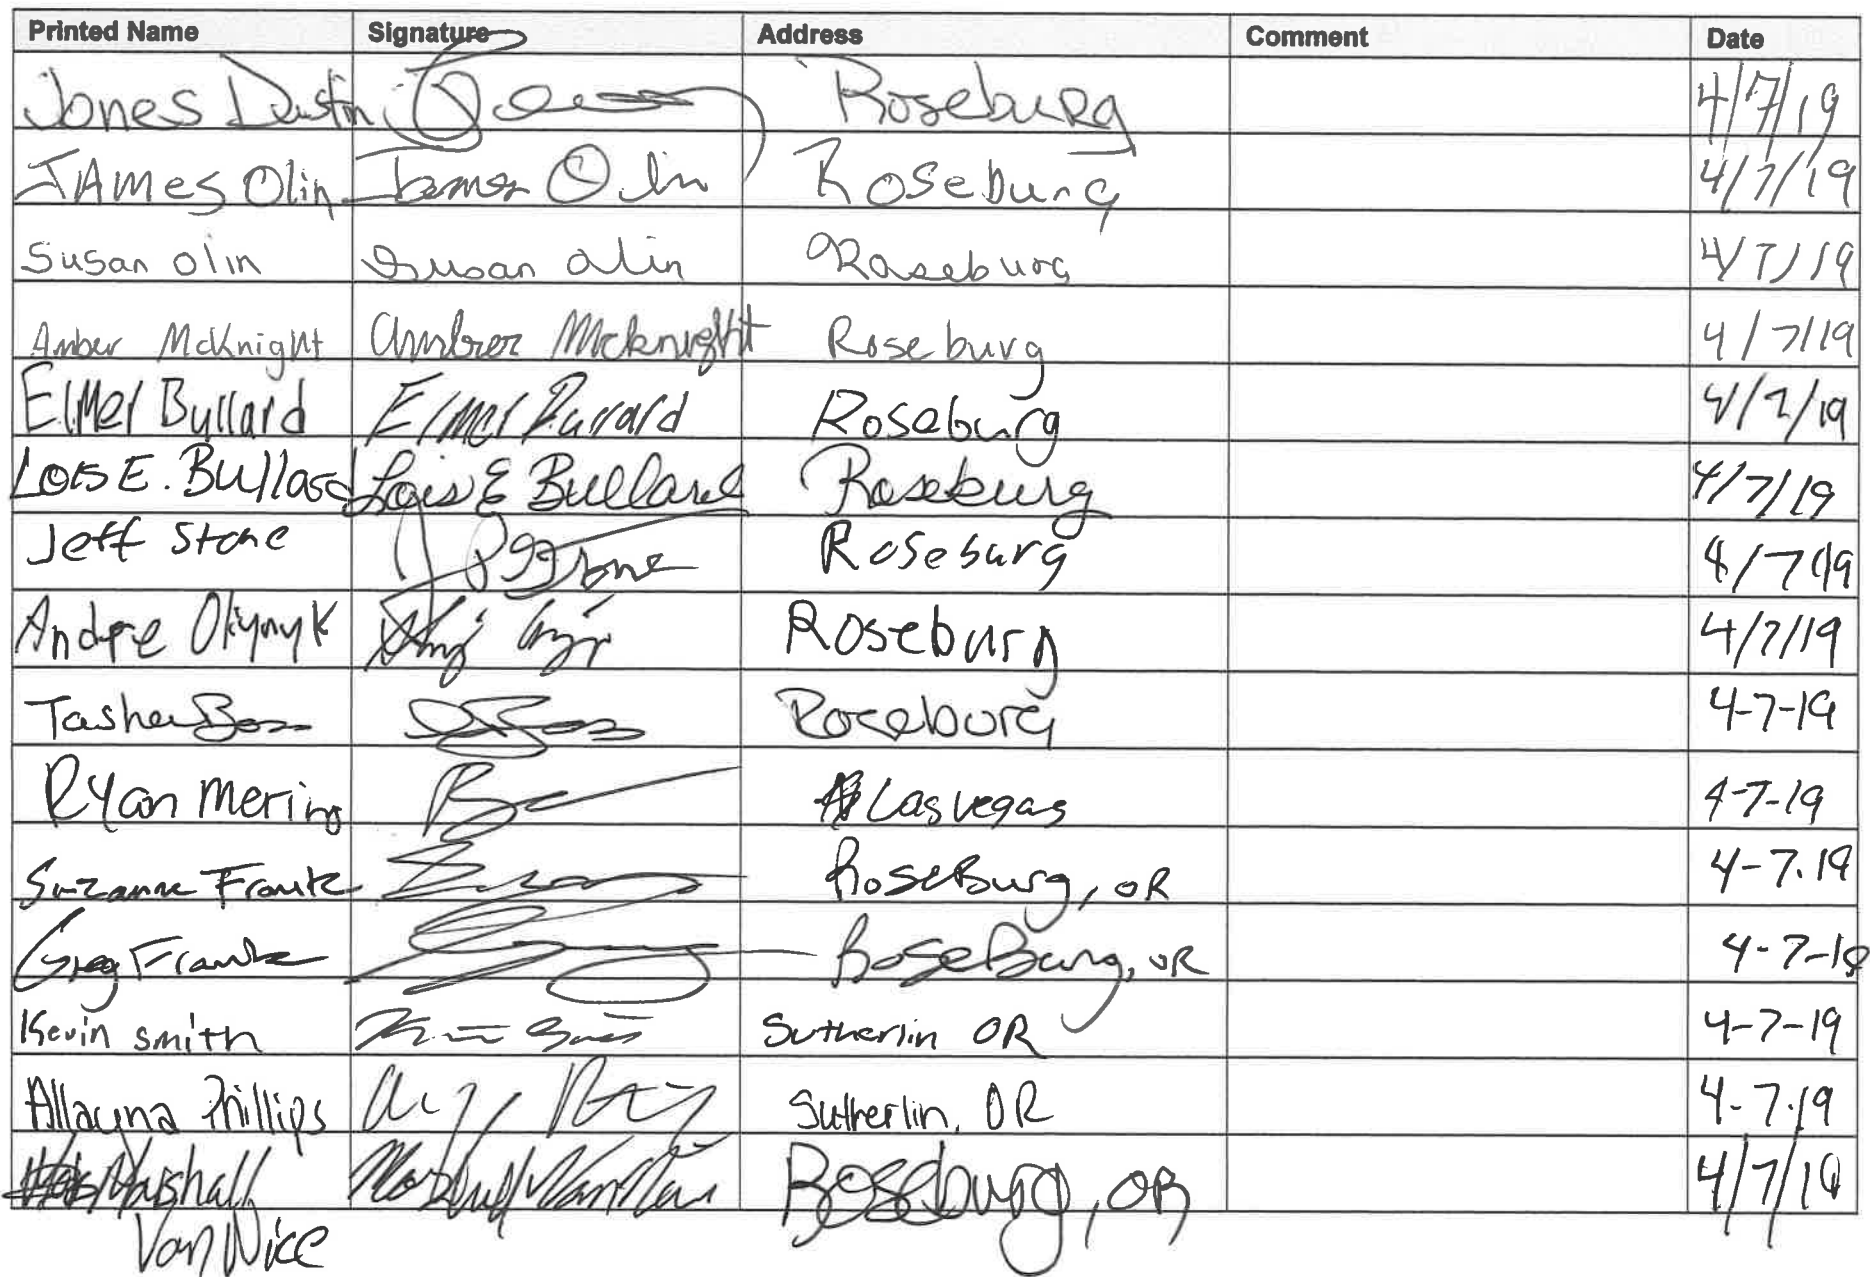 Printed Name Signature Address Comment Date
Jones Dustin Roseburg 4/7/19
JAMes Olin James Olin Roseburg 4/7/19
Susan Olin Susan Olin Roseburg 4/7/19
Amber McKnight Amber McKnight Roseburg 4/7/19
Elmer Bullard Elmer Bullard Roseburg 4/7/19
Lois E. Bullard Lois E Bullard Roseburg 4/7/19
Jeff Stone Jeff Stone Roseburg 4/7/19
Andre Oliynyk Roseburg 4/7/19
Tasha Roseburg 4-7-19
Ryan Merino Las vegas 4-7-19
Suzanne Frantz RoseBurg, OR 4-7.19
Greg Frantz RoseBurg, OR 4-7-19
Kevin Smith Sutherlin OR 4-7-19
Allayna Phillips Sutherlin, OR 4-7.19
Marshall Marshall VanNice Roseburg, OR 4/7/19
Van Nice